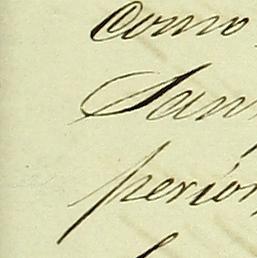 Como
San
perior